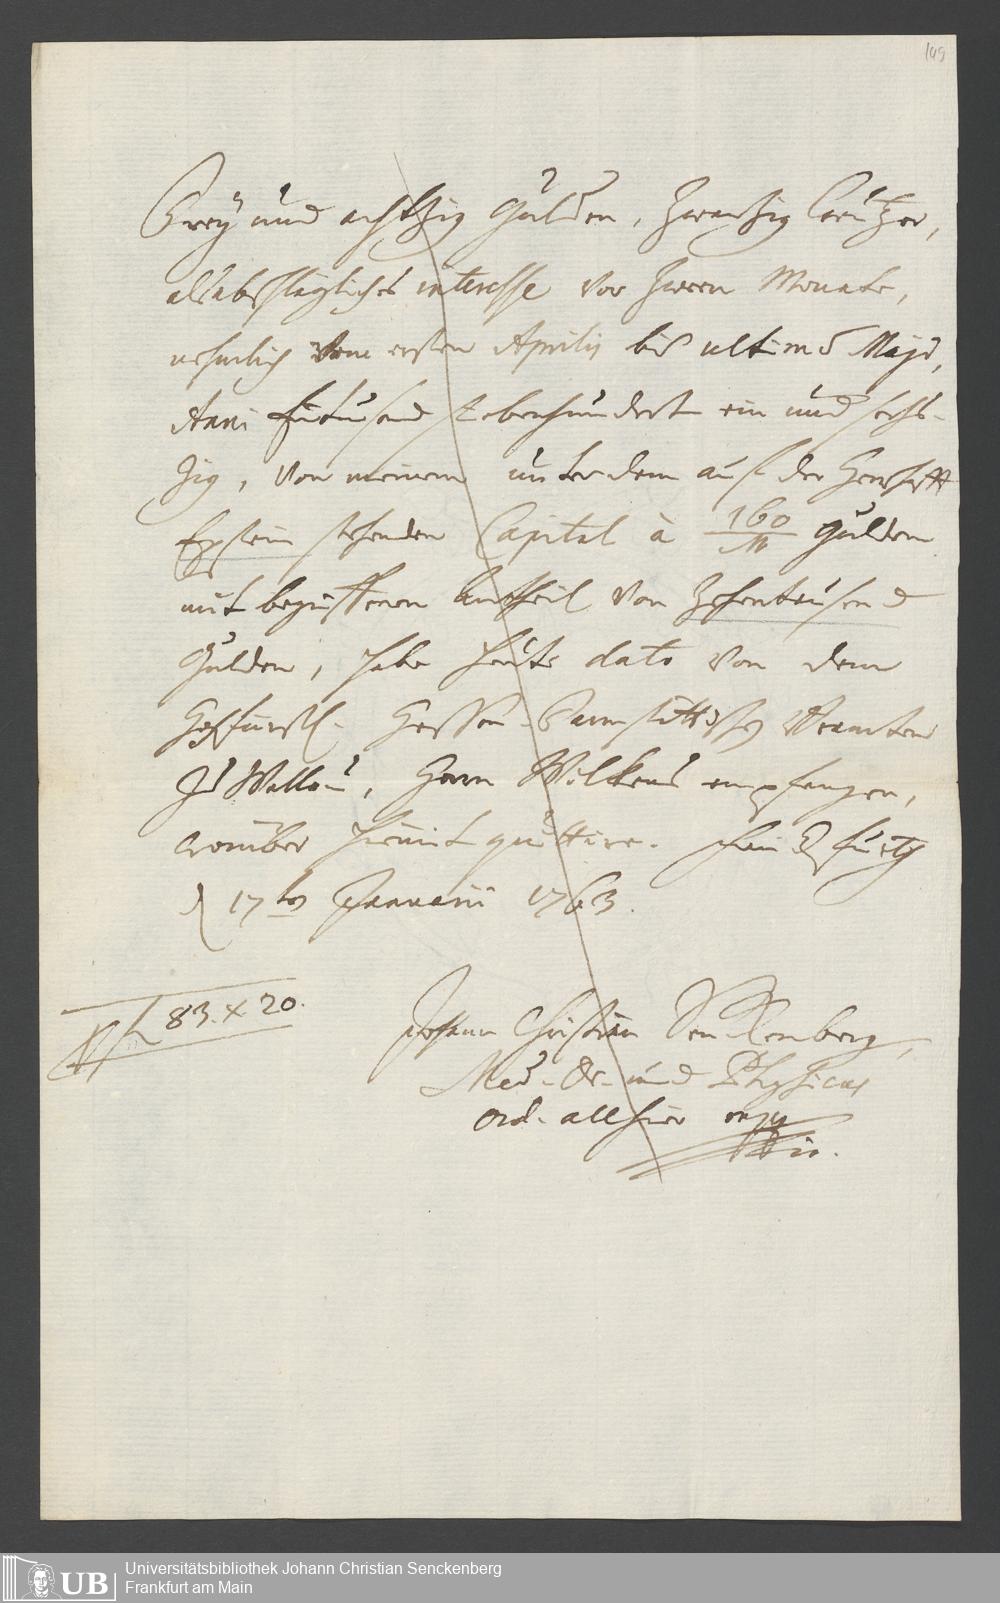 149
Drey und achtzig Gulden, Zwantzig Creutzer,
als abschlägliches interesse vor zween Monate,
nehmlich vom ersten Aprilis bis ultimo Maji,
Anni Eintausend siebenhundert ein und sechs-
zig, von meinem unter dem auf der Herrschafft
Epstein stehenden Capital à 160/M Gulden
mit begriffenen Antheil von Zehentausend
Gulden, habe heute dato von dem
Hochfürstl. Hessen-Darmstättischen Beamten
zu Wallau, Herrn Wilckens empfangen,
worüber hiermit quittire. Franckfurth
d 17ten Januarii 1763.
fl 83. x 20.
Johann Christian Senckenberg,
Med. Dr. und Physicus
ord. allhier mpp